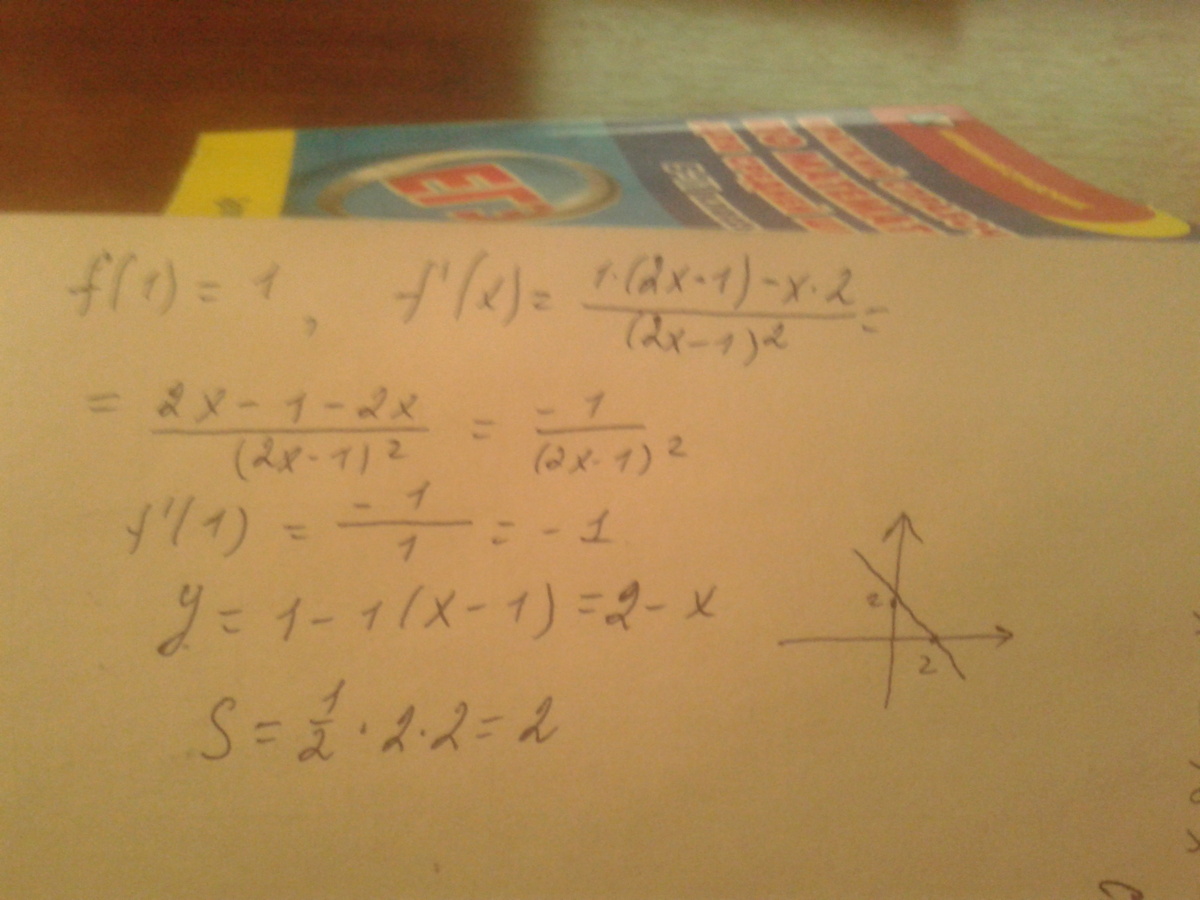 ЕГЭ
f(1) = 1 , f'(x) = (1·(2x-1)-x·2)/(2x-1)² =
= (2x-1-2x)/(2x-1)² = -1/(2x-1)²
f'(1) = -1/1 = -1
y = 1-1(x-1) = 2-x
2
2
S = 1/2 · 2 · 2 = 2